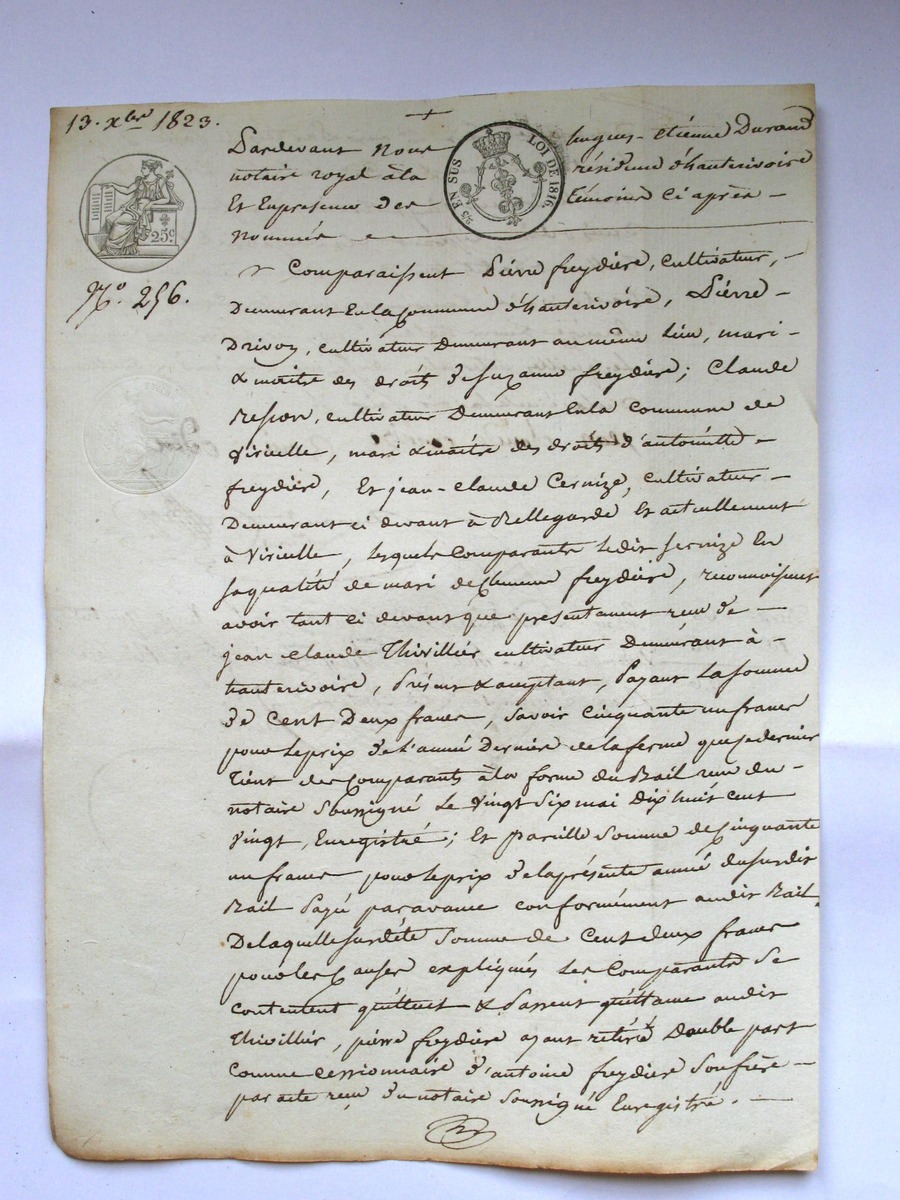 13. xbre 1823.
Pardevant Nous hugues-etiénne Durand
notaire royal à la résidence d'hauterivoire
Et Enpresence des témoins ci après -
nommés
25 EN SUS LOI DE 1816.
25c.
No. 256.
Comparaissent Piérre freydiére, cultivateur, -
Demeurant En la Commune d'hauterivoire, Piérre -
Drivon, cultivateur Demeurant au même lieu, mari -
& maitre des droits de Suzanne freydiére; Claude
cultivateur Demeurant En la Commune de
Virielle, mari & maitre des droits d'antoinette -
freydiére, Et jean-claude Cernize, cultivateur -
Demeurant ci devant à Bellegarde Et actuellement
à Virielle, lesquels Comparants ledit Sernize En
sa qualité de mari de freydiére, reconnoissent
avoir tant ci devant que présentement reçu de -
jean claude Thivilliér cultivateur Demeurant à -
hauterivoire, Présent & acceptant, Payant La somme
de Cent Deux francs, savoir cinquante un francs
pour le prix de l'année Derniére de la ferme que ce dernier
tient des Comparants à la forme du Bail reçu du -
notaire soussigné Le vingt six mai Dix huit cent
vingt, Enregistré; Et pareille somme de Cinquante
un francs pour le prix de la présente année du susdit
Bail Payé par avance conformément au dit Bail.
De laquelle susdite somme de Cent deux francs
pour les Causes expliquées Les Comparants se
contentent quittent & Passent quittance au dit
Thivilliér, piérre freydiére ayant retiré Double part
Comme cessionnaire d'antoine freydiére son frère -
par acte reçu du notaire soussigné Enregistré. -